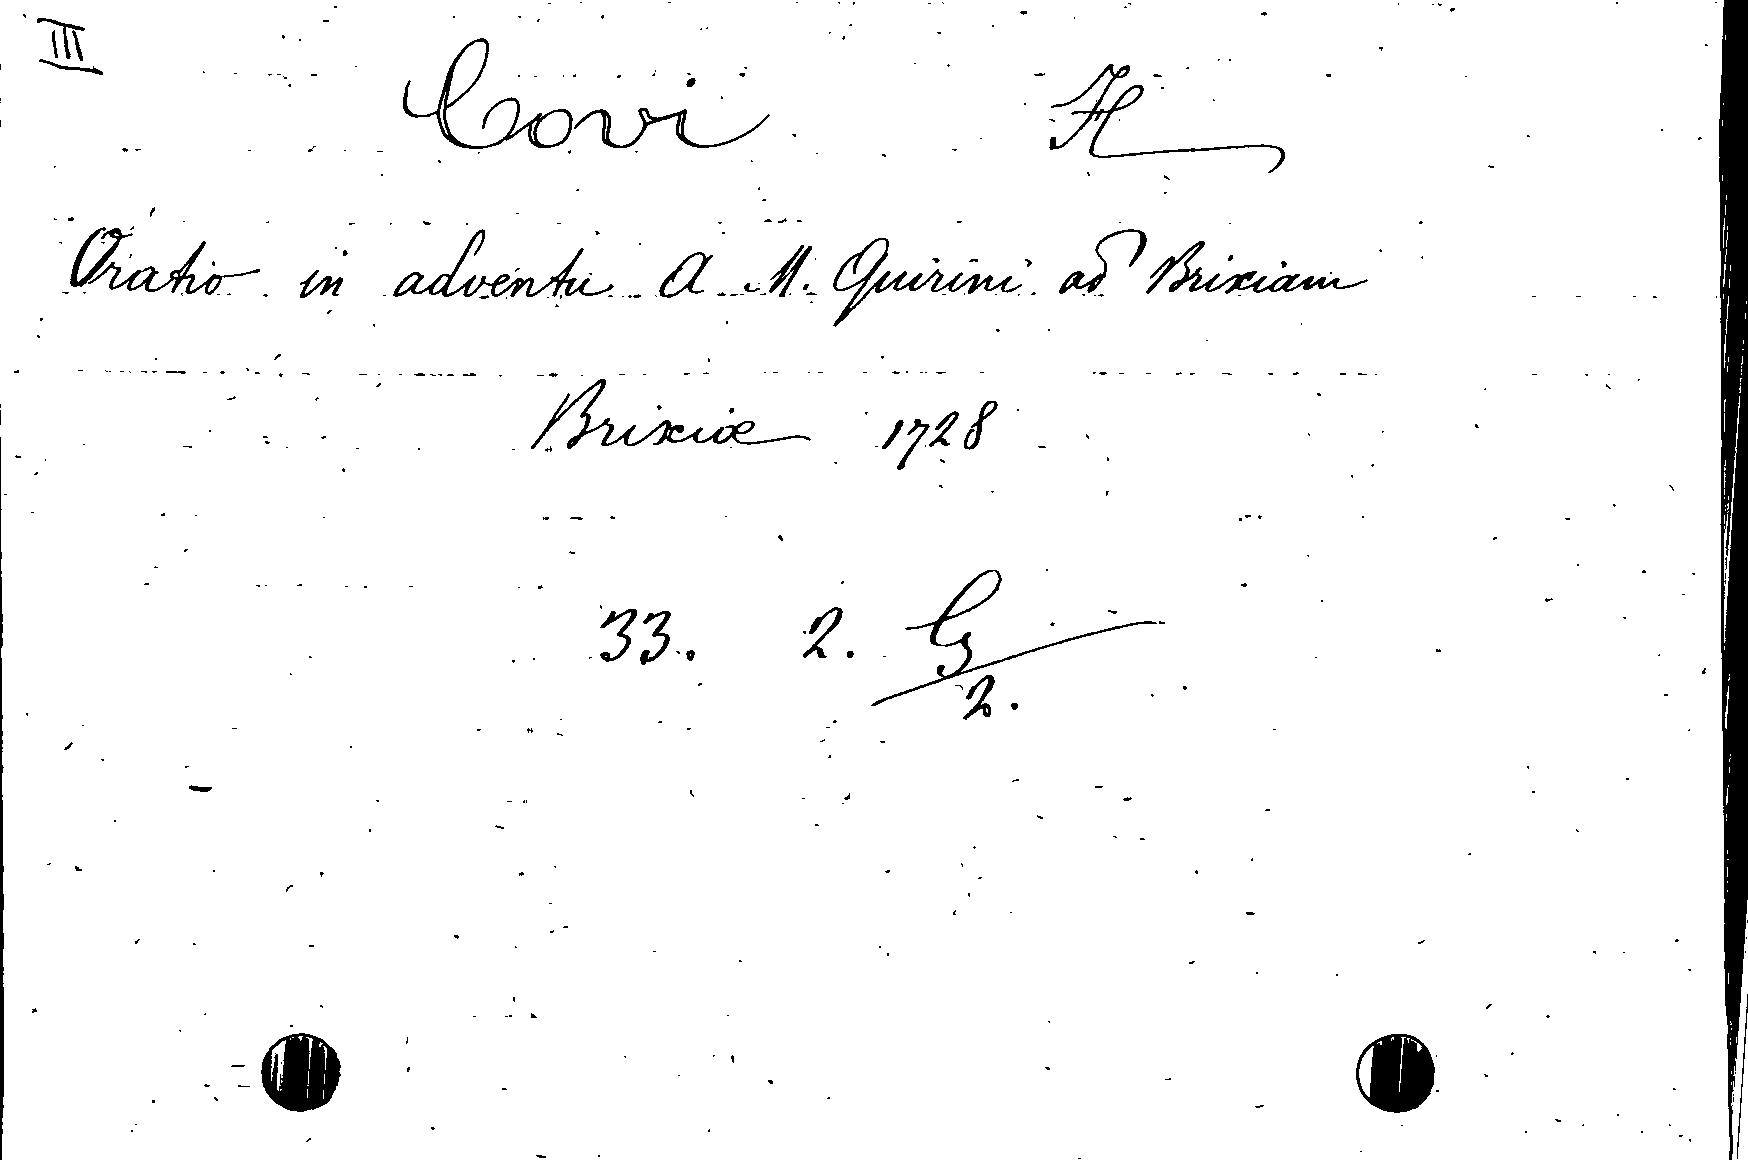 III
Covi H
Oratio in adventu A M. Quirini ad Brixiam
Brixiæ 1728
33. 2. G
2.